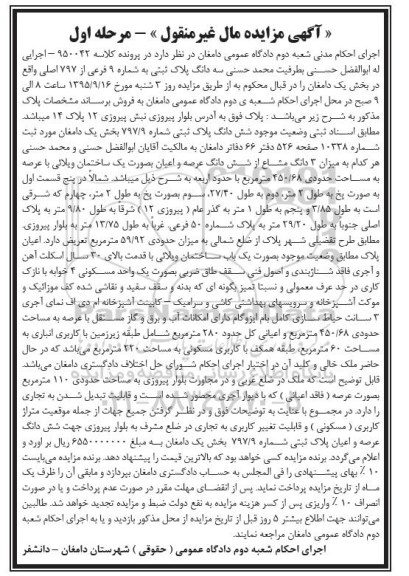 « آگهی مزایده مال غیرمنقول » – مرحله اول
اجرای احکام مدنی شعبه دوم دادگاه عمومی دامغان در نظر دارد در پرونده کلاسه ۹۵۰۰۴۲ – اجرایی
له ابوالفضل حسنی بطرفیت محمد حسنی سه دانگ پلاک ثبتی به شماره ۹ فرعی از ۷۹۷ اصلی واقع
در بخش یک دامغان را در قبال محکوم به از طریق مزایده روز ۳ شنبه مورخ ۱۳۹۵/۹/۱۶ ساعت ۸ الی
۹ صبح در محل اجرای احکام شعبه ی دوم دادگاه عمومی دامغان به فروش برساند مشخصات پلاک
مذکور به شرح زیر می‌باشد : پلاک فوق به آدرس بلوار پیروزی نبش پیروزی ۱۲ پلاک ۱۴ میباشد.
مطابق اسناد ثبتی وضعیت موجود شش دانگ پلاک ثبتی شماره ۷۹۷/۹ بخش یک دامغان مورد ثبت
شماره ۱۰۳۳۸ صفحه ۵۲۶ دفتر ۶۶ دفاتر دامغان به مالکیت آقایان ابوالفضل حسنی و محمد حسنی
هر کدام به میزان ۳ دانگ مشاع از شش دانگ عرصه و اعیان بصورت یک ساختمان ویلائی با عرصه
به مساحت حدودی ۴۵۰/۶۸ مترمربع با حدود اربعه به شرح ذیل میباشد. شمالاً در پنج قسمت اول
به صورت پخ به طول ۲ متر، دوم به طول ۲۷/۴۰، سوم بصورت پخ به طول ۲ متر، چهارم که شرقی
است به طول ۳/۸۵ و پنجم به طول ۱ متر به گذر عام ( پیروزی ۱۲ ) شرقا به طول ۹/۸۰ متر به پلاک
اصلی جنوبا به طول ۲۹/۲۰ متر به پلاک شماره ۵۰ فرعی. غرباً به طول ۱۳/۷۵ متر به بلوار پیروزی.
مطابق طرح تفصیلی شهر پلاک از ضلع شمالی به میزان حدودی ۵۹/۹۲ مترمربع تعریض دارد. اعیان
پلاک مطابق وضعیت موجود بصورت یک باب ساختمان ویلائی با قدمت بالای ۳۰ سال اسکلت آهن
و آجری فاقد شناژبندی و اصول فنی سقف طاق ضربی بصورت یک واحد مسکونی ۴ خوابه با نازک
کاری در حد عرف معمولی و نسبتا تمیز بگونه ای که بدنه و سقف سفید و نقاشی شده کف موزائیک و
موکت آشپزخانه و سرویسهای بهداشتی کاشی و سرامیک – کابینت آشپزخانه ام دی اف نمای آجری
۳ سانت حیاط سازی کامل بام ایزوگام دارای امکانات آب و برق و گاز مستقل با عرصه به مساحت
حدودی ۴۵۰/۶۸ مترمربع و اعیانی کل حدود ۲۸۰ مترمربع شامل طبقه زیرزمین با کاربری انباری به
مساحت ۶۰ مترمربع، طبقه همکف با کاربری مسکونی به مساحت ۲۲۰ مترمربع می‌باشد که در حال
حاضر ملک خالی و کلید آن در اختیار اجرای احکام شورای حل اختلاف دادگستری دامغان می‌باشد.
قابل توضیح است که ملک در ضلع غربی و در مجاورت بلوار پیروزی به مساحت حدودی ۱۱۰ مترمربع
بصورت عرصه ( فاقد اعیانی ) که با دیوار آجری محصور شده است و قابلیت تبدیل شدن به تجاری
را دارد. در مجموع با عنایت به توضیحات فوق و در نظر گرفتن جمیع جهات از جمله موقعیت متراژ
کاربری ( مسکونی ) و قابلیت تغییر کاربری به تجاری در ضلع مشرف به بلوار پیروزی جهت شش دانگ
عرصه و اعیان پلاک ثبتی شماره ۷۹۷/۹ بخش یک دامغان به مبلغ ۶۵۵۰۰۰۰۰۰۰ ریال بر اورد و
اعلام می‌گردد. برنده مزایده کسی خواهد بود که بالاترین قیمت را پیشنهاد دهد. برنده مزایده می‌بایست
۱۰ ٪ بهای پیشنهادی را فی المجلس به حساب دادگستری دامغان بپردازد و مابقی آن را ظرف یک
ماه از تاریخ مزایده پرداخت نماید. پس از انقضای مهلت مقرر در صورت عدم پرداخت و یا در صورت
انصراف ۱۰ ٪ واریزی پس از کسر هزینه مزایده به نفع دولت ضبط و مزایده تجدید خواهد شد. طالبین
می‌توانند جهت اطلاع بیشتر ۵ روز قبل از تاریخ مزایده از محل مذکور بازدید و یا به اجرای احکام شعبه
دوم دادگاه عمومی دامغان مراجعه نمایند.
اجرای احکام شعبه دوم دادگاه عمومی ( حقوقی ) شهرستان دامغان – دانشفر